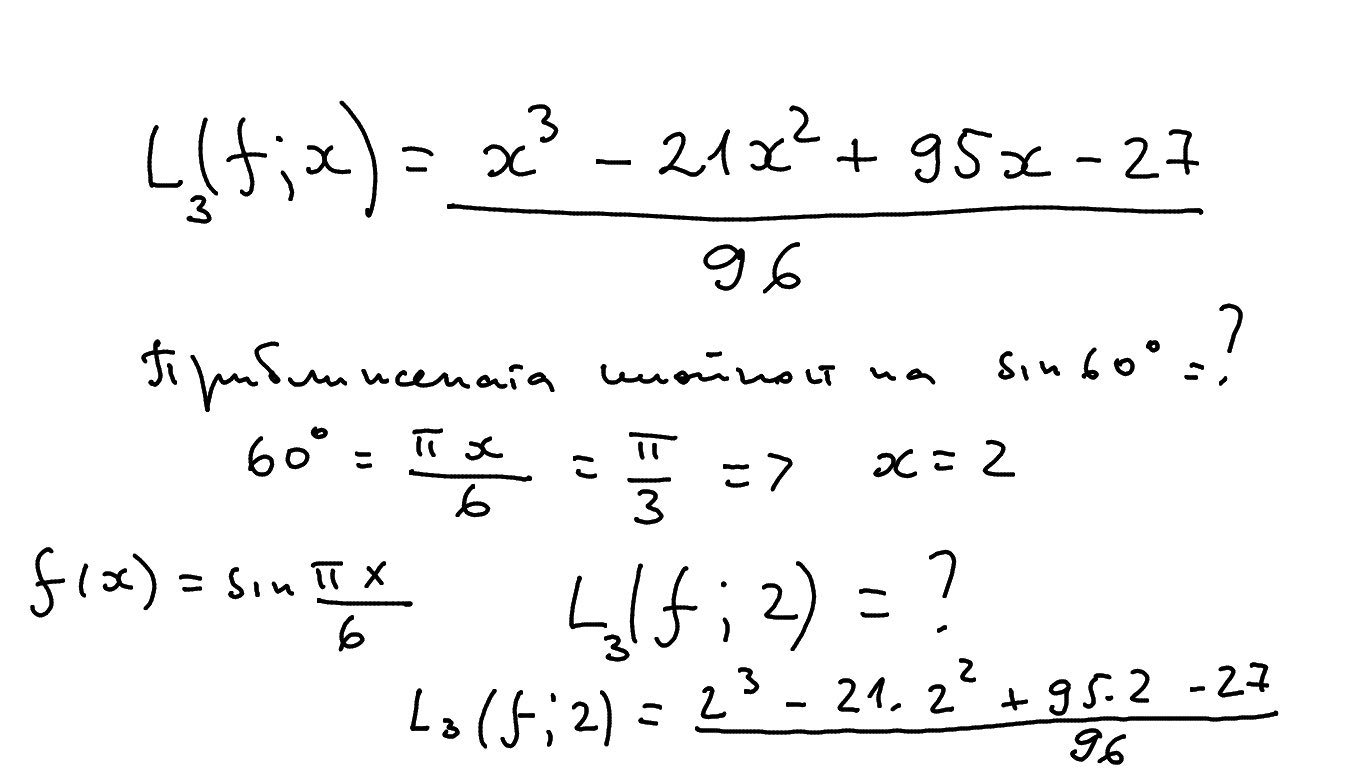 L₃(f;x) = (x³ - 21x² + 95x - 27) / 96
Приближената стойност на sin 60° = ?
60° = πx/6 = π/3 => x = 2
f(x) = sin πx/6 L₃(f;2) = ?
L₃(f;2) = (2³ - 21.2² + 95.2 - 27) / 96